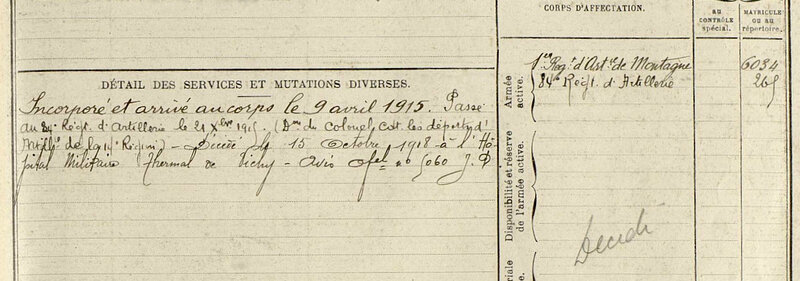 CORPS D'AFFECTATION.
au
CONTRÔLE
spécial.
MATRICULE
ou au
répertoire.
DÉTAIL DES SERVICES ET MUTATIONS DIVERSES.
Incorporé et arrivé au corps le 9 avril 1915. Passé
au 84e Régt. d'Artillerie le 21 Xbre 1915. (Don du Colonel, Cdt. les dépôts d'
Artillie de la 14e Région) - Décédé le 15 Octobre 1918 à l'Hô-
pital Militaire Thermal de Vichy - Avis no 5060
Armée
active.
1er Régt d'Artie de Montagne
84e Régt. d'Artillerie
6034
265
Disponibilité et réserve
de l'armée active.
Décédé